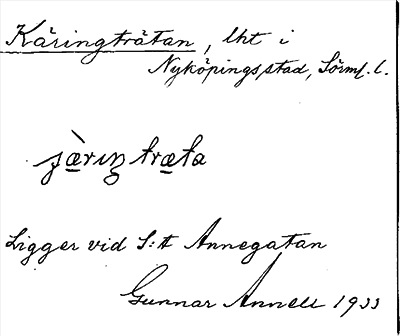 Käringträtan, lht i
Nyköpings stad, Sörml. l.
jæ̀rıŋ træta
Ligger vid S:t Annegatan
Gunnar Annell 1933